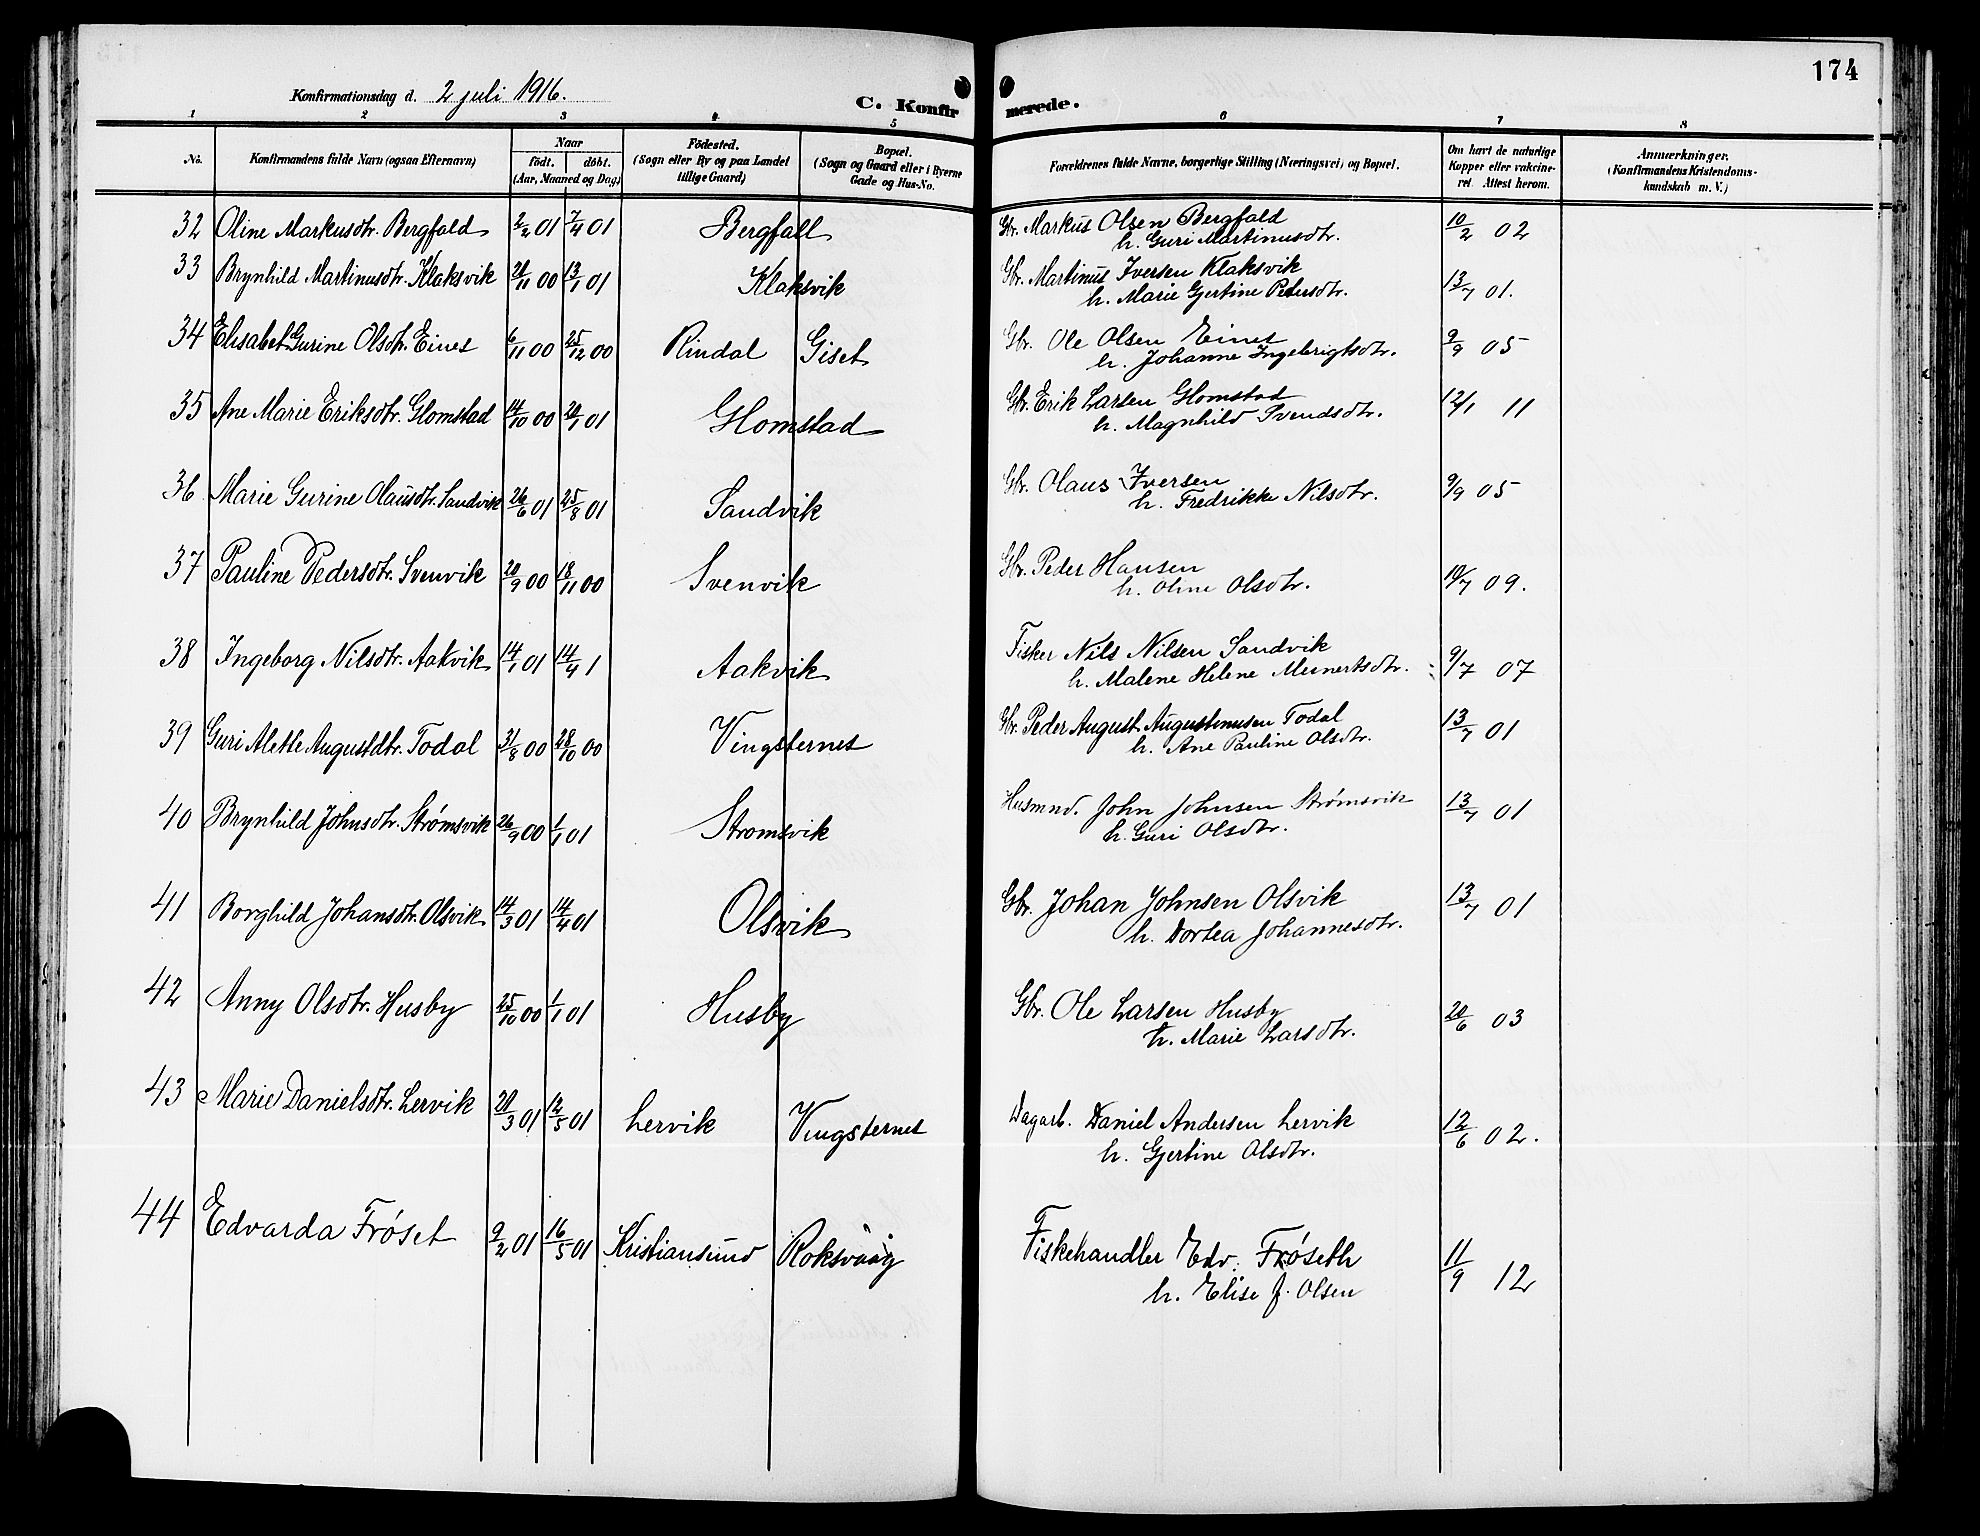 174
Konfirmationsdag d. 2 juli 1916.
C. Konfirmerede.
1 2 3 4 5 6 7 8
No. Konfirmandens fulde Navn (ogsaa Efternavn) Naar födt. döbt. (Aar, Maaned og Dag) Födested. (Sogn eller By og paa Landet tillige Gaard) Bopæl. (Sogn og Gaard eller i Byerne Gade og Hus-No. Forældrenes fulde Navne, borgerlige Stilling (Næringsvei) og Bopæl. Om havt de naturlige Kopper eller vakcineret. Attest herom. Anmærkninger. (Konfirmandens Kristendomskundskab m. V.)
32 Oline Markusdtr. Bergfald 2/2 01 7/4 01 Bergfall Gbr. Markus Olsen Bergfald 10/2 02
h. Guri Martinusdtr.
33 Brynhild Martinusdtr. Klaksvik 21/11 00 13/1 01 Klaksvik Gbr. Martinus Iversen Klaksvik 13/7 01.
h. Marie Gjertine Petersdtr.
34 Elisabet Gurine Olsdtr. Eines 6/11 00 25/12 00 Rindal Giset Gbr. Ole Olsen Eines 9/9 05
h. Johanne Ingebrigtsdtr.
35 Ane Marie Eriksdtr. Glomstad 14/10 00 20/1 01 Glomstad Gbr. Erik Larsen Glomstad 12/1 11
h. Magnhild Svendsdtr.
36 Marie Gurine Olausdtr. Sandvik 26/6 01 25/8 01 Sandvik Gbr. Olaus Iversen 9/9 05
h. Fredrikke Nilsdtr.
37 Pauline Pedersdtr. Svenvik 20/9 00 18/11 00 Svenvik Gbr. Peder Hansen 10/7 09.
h. Oline Olsdtr.
38 Ingeborg Nilsdtr. Aakvik 14/1 01 14/4 1 Aakvik Fisker Nils Nilsen Sandvik 9/7 07
h. Malene Helene Meinertsdtr.
39 Guri Alette Augustdtr. Todal 31/8 00 28/10 00 Vingsternes Gbr. Peder August Augustinusen Todal 13/7 01
h. Ane Pauline Olsdtr.
40 Brynhild Johnsdtr. Strømsvik 26/9 00 1/1 01 Stromsvik Husmnd. John Johnsen Strømsvik 13/7 01
h. Guri Olsdtr.
41 Borghild Johansdtr. Olsvik 14/3 01 14/4 01 Olsvik Gbr. Johan Johnsen Olsvik 13/7 01
h. Dortea Johannesdtr.
42 Anny Olsdtr. Husby 25/10 00 1/1 01 Husby Gbr. Ole Larsen Husby 20/6 03
h. Marie Larsdtr.
43 Marie Danielsdtr. Lervik 20/3 01 12/5 01 Lervik Vingsternes Dagarb. Daniel Andersen Lervik 12/6 02.
h. Gjertine Olsdtr.
44 Edvarda Frøset 9/2 01 16/5 01 Kristiansund Roksvaag Fiskehandler Edv. Frøseth 11/9 12
h. Elise J. Olsen